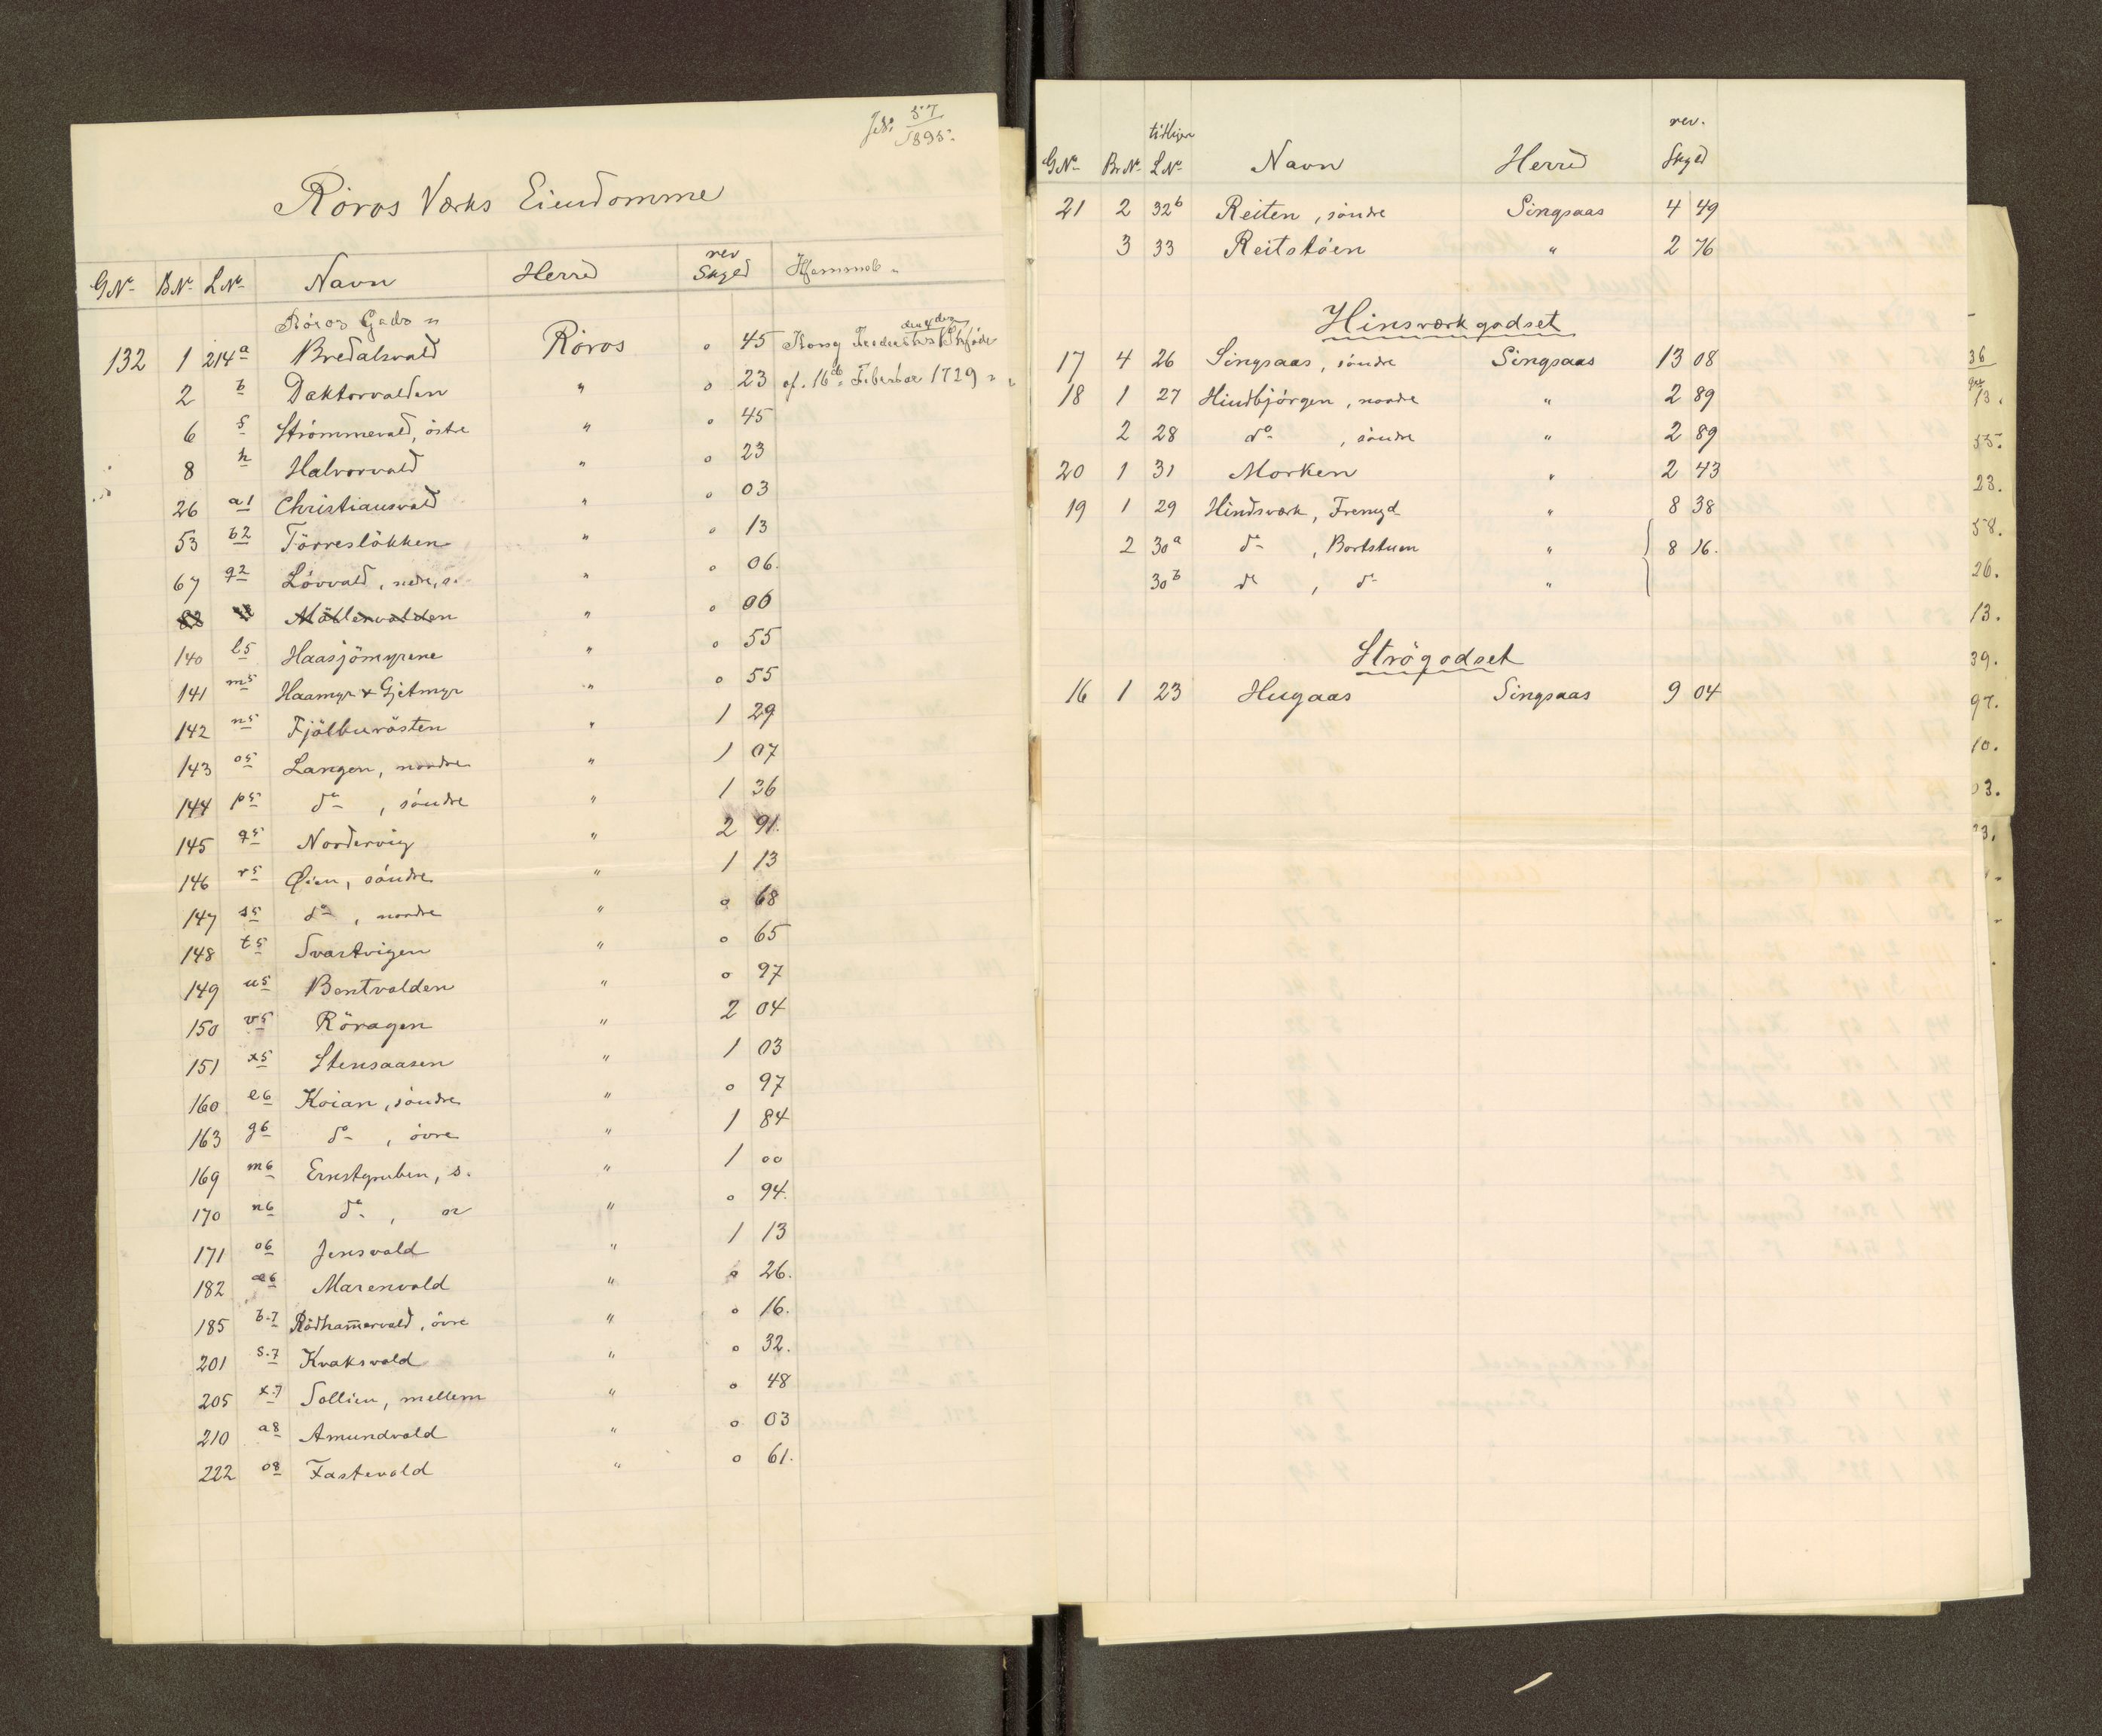 57
1895.
Röros Værks Eiendomme
G.No B.No L.No Navn Herred rev Skyld Hjemmel
Röros Gods
132 1 214a Bredalsvald Röros 0 45 Kong Frederiks den 4des Skjöde
2 b Doktorvolden " 0 23 af 16de Februar 1729
6 f Strömmevald, östre " 0 45
8 h Halvorvald " 0 23
26 a1 Christiansvald " 0 03
53 b2 Törreslökken " 0 13
67 q2 Lövvald, nedre, s. " 0 06.
83 Möllervolden " 0 06
140 l5 Haasjömyrene " 0 55
141 m5 Haamyr & Gjetmyr " 0 55
142 n5 Fjölburösten " 1 29
143 o5 Langen, nordre " 1 07
144 p5 do , söndre " 1 36
145 q5 Nordervig " 2 91.
146 r5 Øien, söndre " 1 13
147 s5 do , nordre " 0 68
148 t5 Svartvigen " 0 65
149 u5 Bentvolden " 0 97
150 v5 Röragen " 2 04
151 x5 Stensaasen " 1 03
160 e6 Koian, söndre " 0 97
163 g6 do , övre " 1 84
169 m6 Ernstgruben, s. " 1 00
170 n6 do , n " 0 94.
171 o6 Jensvold " 1 13
182 æ6 Marenvold " 0 26.
185 b.7 Rödham̅ervald, övre " 0 16.
201 s.7 Kvaksvold " 0 32.
205 x.7 Sollien, mellem " 0 48
210 a8 Amundvold " 0 03
222 o8 Fastevold " 0 61.
G.No Br.No tidligere L.No Navn Herred rev. Skyld
21 2 32b Reiten, söndre Singsaas 4 49
3 33 Reitstöen " 2 76
Hinsværkgodset
17 4 26 Singsaas, söndre Singsaas 13 08
18 1 27 Hindbjörgen, nordre " 2 89
2 28 do , söndre " 2 89
20 1 31 Morken " 2 43
19 1 29 Hindsværk, Fremgd " 8 38
2 30a do , Bortstuen " 8 16.
30b do , do "
Strögodset
16 1 23 Hugaas Singsaas 9 04
36
13.
55.
23.
58.
26.
13.
39.
97.
10.
03.
23.